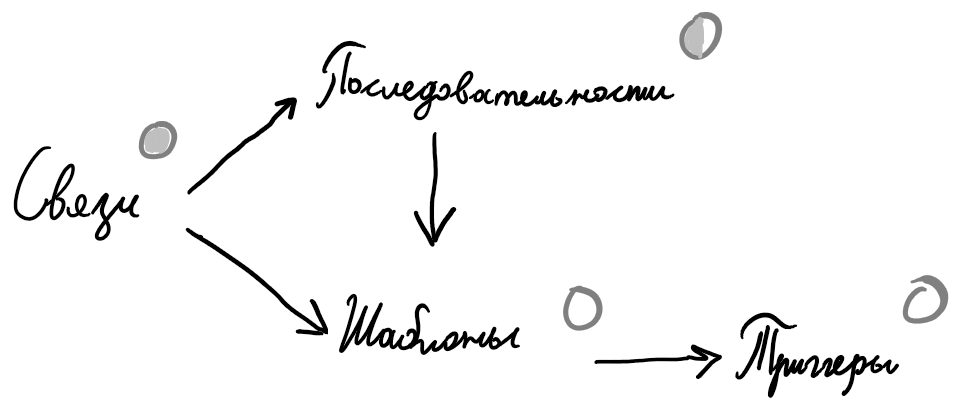 Последовательности
Связи
Шаблоны
Триггеры